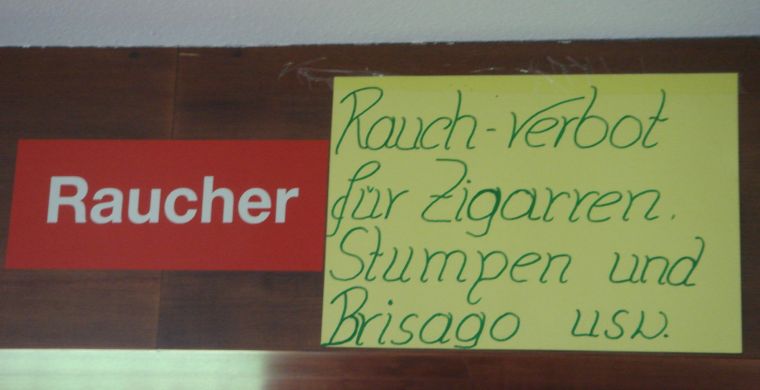 Raucher
Rauch-Verbot
für Zigarren.
Stumpen und
Brisago usw.